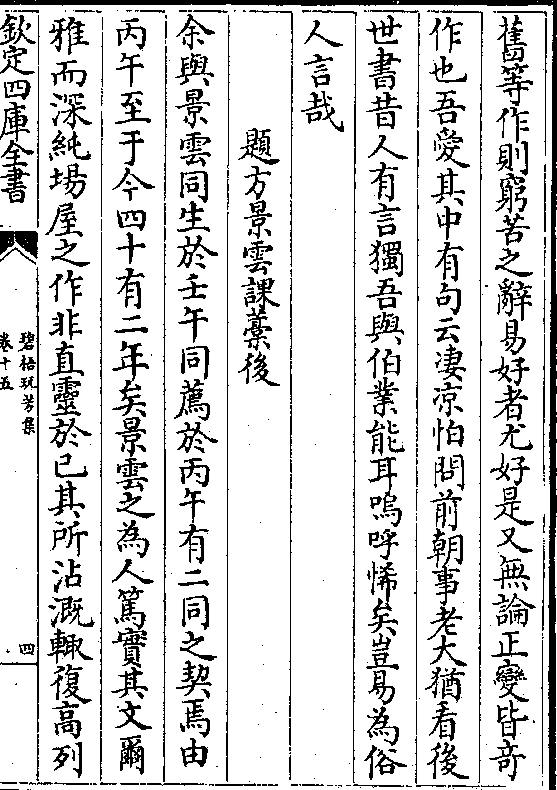 舊等作則窮苦之辭易好者尤好是又無論正變皆奇
作也吾愛其中有句云凄凉怕問前朝事老大猶看後
世書昔人有言獨吾與伯業能耳嗚呼悕矣豈易為俗
人言哉
題方景雲課藁後
余與景雲同生於壬午同薦於丙午有二同之契焉由
丙午至于今四十有二年矣景雲之為人篤實其文爾
雅而深純場屋之作非直靈於已其所沾溉輙復高列
欽定四庫全書
碧梧玩芳集
卷十五
四